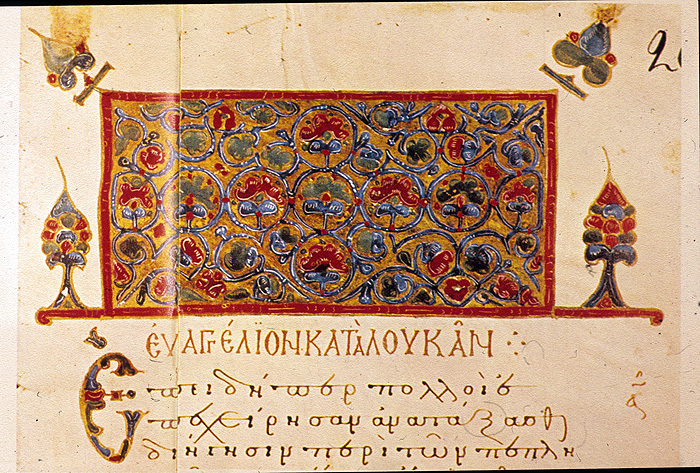 ΕΥΑΓΓΈΛΙΟΝ ΚΑΤᾺ ΛΟΥΚᾶΝ
Ἐπειδήπερ πολλοὶ ἐ
πεχείρησαν ἀνατάξασθ
διήγησιν περὶ τῶν πεπλη